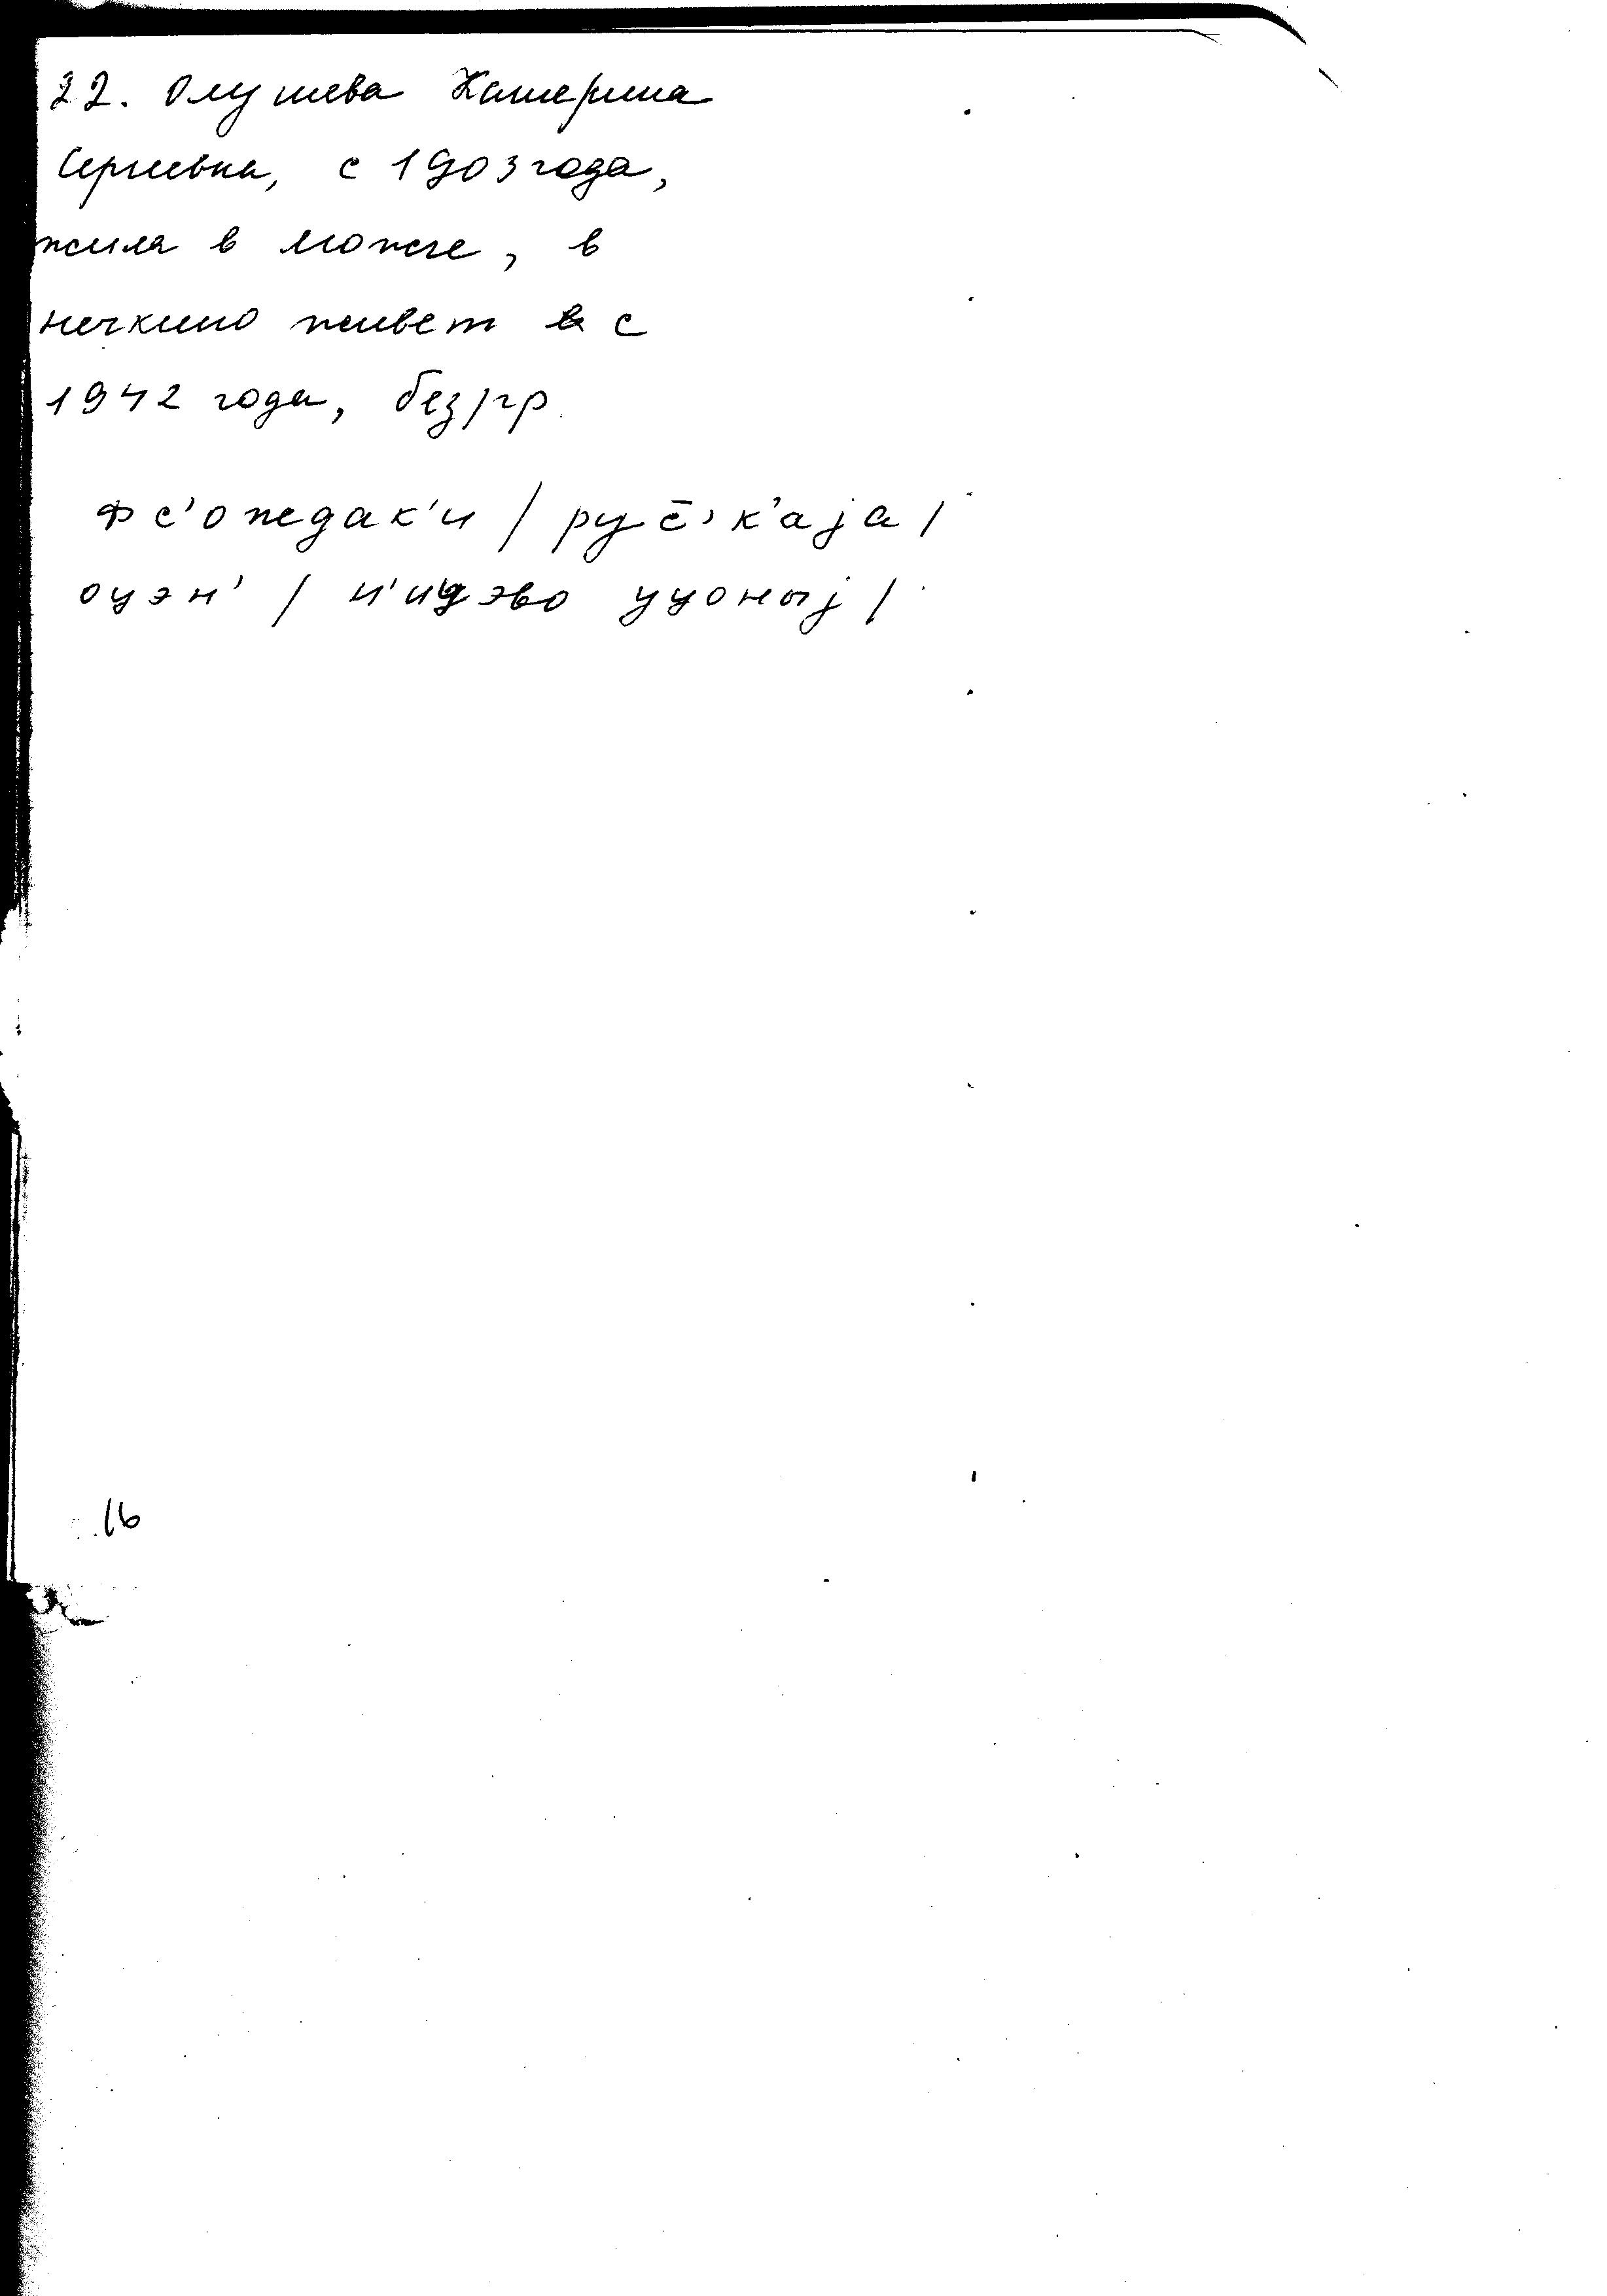 22. Олушева Катерина
Сергеевна, с 1903 года,
жила в Можге, в
Нечкино живет в с
1942 года, без/гр.
фс'о жедак'и / рус̄'к'аjа /
оцэн' / н'ицэво уцоныj /
16